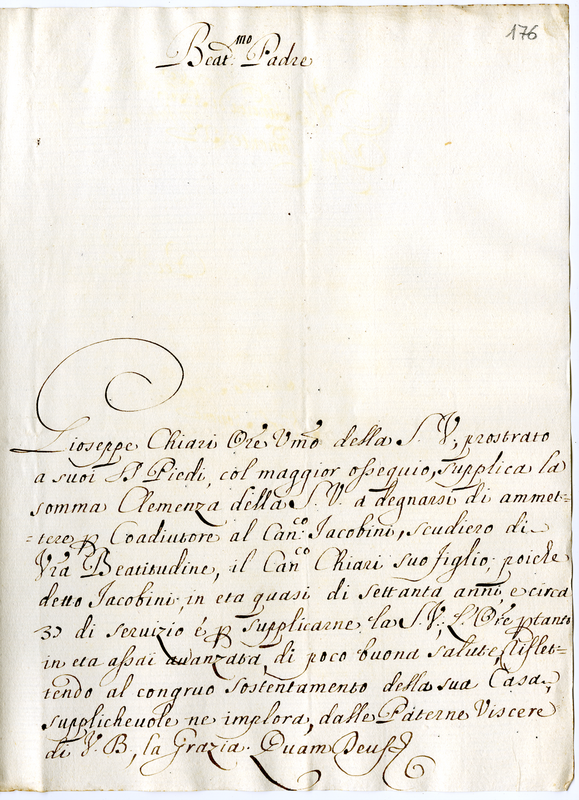 176
Beat.mo Padre
Gioseppe Chiari Ore Vmo della S. V., prostrato
a suoi SS Piedi, col maggior ossequio, supplica la
somma Clemenza della S. V. a degnarsi di ammet=
=tere p Coadiutore al Can.co Jacobini, scudiero di
Vra Beatitudine, il Can.co Chiari suo figlio; poiche
detto Jacobini, in eta quasi di settanta anni, e circa
di servizio é p supplicarne la S. V; L'Ore ptanto
in eta assai avanzata, di poco buona salute, riflet=
tendo al congruo sostentamento della sua Casa,
supplichevole ne implora, dalle Paterne Viscere
di V. B, la Grazia. Quam Deus